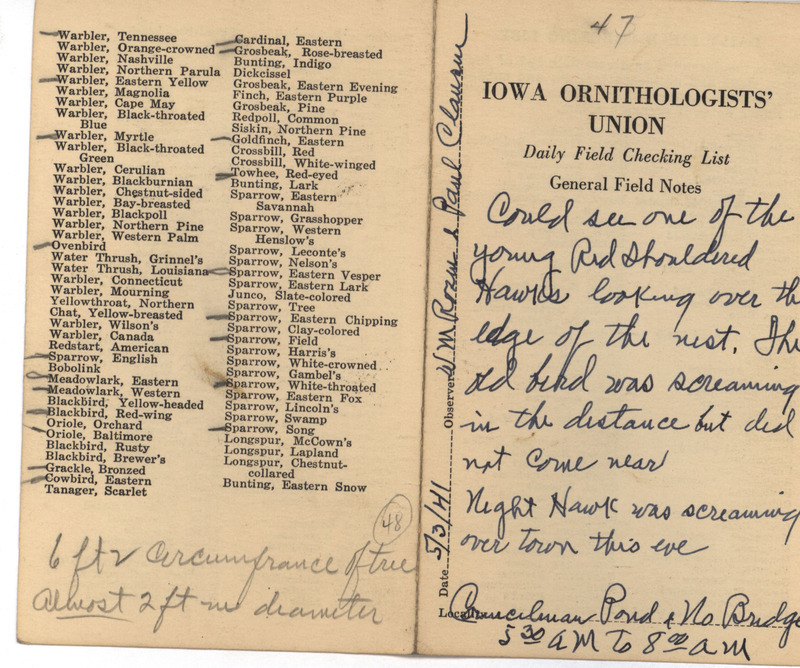 Warbler, Tennessee
Warbler, Orange-crowned
Warbler, Nashville
Warbler, Northern Parula
Warbler, Eastern Yellow
Warbler, Magnolia
Warbler, Cape May
Warbler, Black-throated
Blue
Warbler, Myrtle
Warbler, Black-throated
Green
Warbler, Cerulian
Warbler, Blackburnian
Warbler, Chestnut-sided
Warbler, Bay-breasted
Warbler, Blackpoll
Warbler, Northern Pine
Warbler, Western Palm
Ovenbird
Water Thrush, Grinnel's
Water Thrush, Louisiana
Warbler, Connecticut
Warbler, Mourning
Yellowthroat, Northern
Chat, Yellow-breasted
Warbler, Wilson's
Warbler, Canada
Redstart, American
Sparrow, English
Bobolink
Meadowlark, Eastern
Meadowlark, Western
Blackbird, Yellow-headed
Blackbird, Red-wing
Oriole, Orchard
Oriole, Baltimore
Blackbird, Rusty
Blackbird, Brewer's
Grackle, Bronzed
Cowbird, Eastern
Tanager, Scarlet
Cardinal, Eastern
Grosbeak, Rose-breasted
Bunting, Indigo
Dickcissel
Grosbeak, Eastern Evening
Finch, Eastern Purple
Grosbeak, Pine
Redpoll, Common
Siskin, Northern Pine
Goldfinch, Eastern
Crossbill, Red
Crossbill, White-winged
Towhee, Red-eyed
Bunting, Lark
Sparrow, Eastern
Savannah
Sparrow, Grasshopper
Sparrow, Western
Henslow's
Sparrow, Leconte's
Sparrow, Nelson's
Sparrow, Eastern Vesper
Sparrow, Eastern Lark
Junco, Slate-colored
Sparrow, Tree
Sparrow, Eastern Chipping
Sparrow, Clay-colored
Sparrow, Field
Sparrow, Harris's
Sparrow, White-crowned
Sparrow, Gambel's
Sparrow, White-throated
Sparrow, Eastern Fox
Sparrow, Lincoln's
Sparrow, Swamp
Sparrow, Song
Longspur, McCown's
Longspur, Lapland
Longspur, Chestnut-
collared
Bunting, Eastern Snow
48
6 ft 2 Circumfrance of tree
Almost 2 ft in diameter
47
IOWA ORNITHOLOGISTS'
UNION
Daily Field Checking List
General Field Notes
Could see one of the
young Red Shouldered
Hawks looking over th
edge of the nest. The
old bird was screaming
in the distance but did
not come near
Night Hawk was screaming
over town this eve
Date 5/3/41 Observer Wm Rosen & Paul Clausen
Locality Councilman Pond & No Bridge
5 30 AM To 8 00 AM